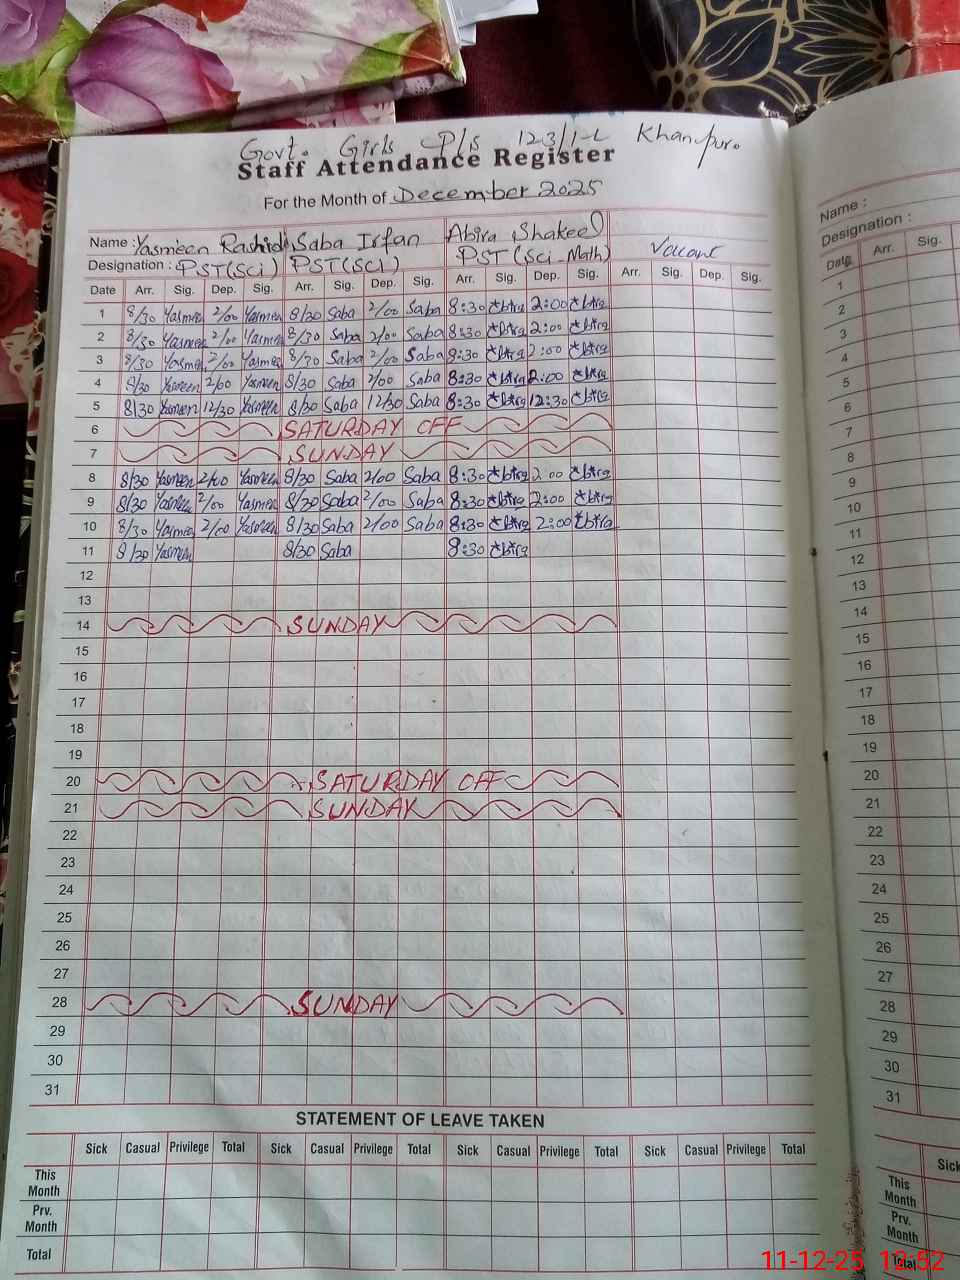 Govt. Girls P/s 123/1-L Khanpur.
Staff Attendance Register
For the Month of December 2025
Name : Yasmeen Rashid Saba Irfan Abira Shakeel Vacant
Designation : PST(Sci) PST(SCi) PST (Sci-Math)
Date Arr. Sig. Dep. Sig. Arr. Sig. Dep. Sig. Arr. Sig. Dep. Sig. Arr. Sig. Dep. Sig.
1 8/30 Yasmeen 2/00 Yasmeen 8/30 Saba 2/00 Saba 8:30 2:00
2 8/30 Yasmeen 2/00 Yasmeen 8/30 Saba 2/00 Saba 8:30 2:00
3 8/30 Yasmeen 2/00 Yasmeen 8/30 Saba 2/00 Saba 8:30 2:00
4 8/30 Yasmeen 2/00 Yasmeen 8/30 Saba 2/00 Saba 8:30 2:00
5 8/30 Yasmeen 12/30 Yasmeen 8/30 Saba 12/30 Saba 8:30 12:30
6 SATURDAY OFF
7 SUNDAY
8 8/30 Yasmeen 2/00 Yasmeen 8/30 Saba 2/00 Saba 8:30 2:00
9 8/30 Yasmeen 2/00 Yasmeen 8/30 Saba 2/00 Saba 8:30 2:00
10 8/30 Yasmeen 2/00 Yasmeen 8/30 Saba 2/00 Saba 8:30 2:00
11 8/30 Yasmeen 8/30 Saba 8:30
12
13
14 SUNDAY
15
16
17
18
19
20 SATURDAY OFF
21 SUNDAY
22
23
24
25
26
27
28 SUNDAY
29
30
31
STATEMENT OF LEAVE TAKEN
Sick Casual Privilege Total Sick Casual Privilege Total Sick Casual Privilege Total Sick Casual Privilege Total
This Month
Prv. Month
Total
Name :
Designation :
Date Arr. Sig.
1
2
3
4
5
6
7
8
9
10
11
12
13
14
15
16
17
18
19
20
21
22
23
24
25
26
27
28
29
30
31
Sick
This Month
Prv. Month
Total